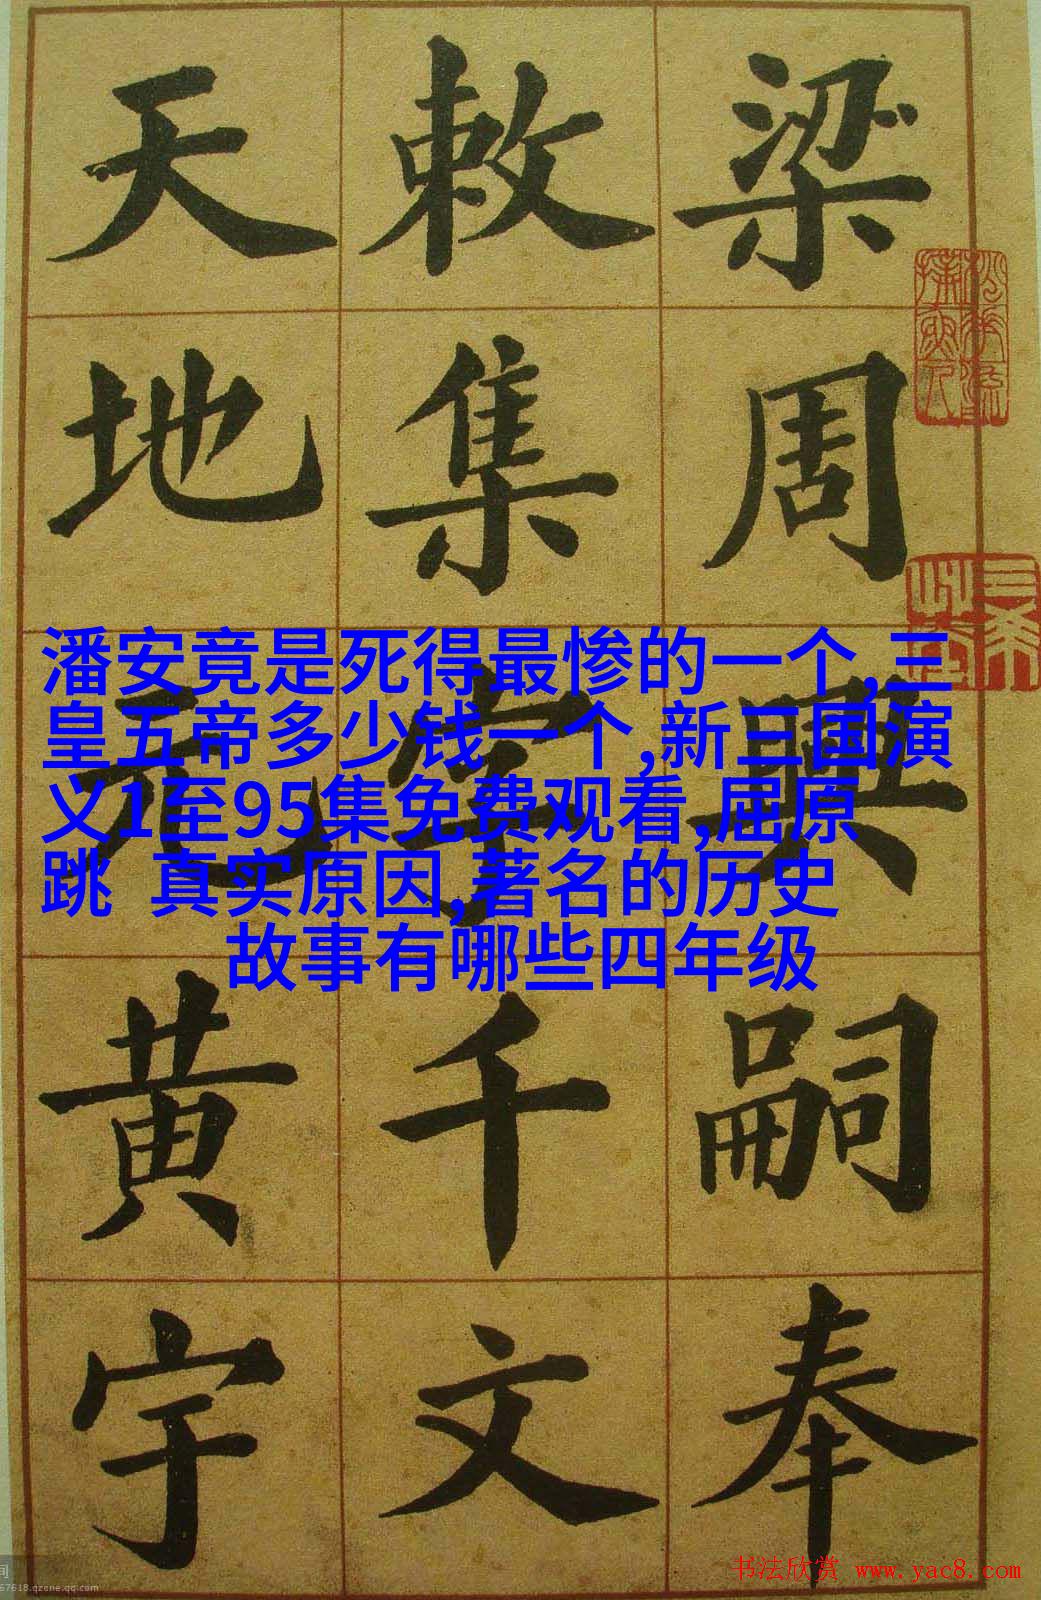 梁周興嗣奉
敕集字千文
天地元黄宇
潘安竟是死得最惨的一个,三
皇五帝多少钱一个,新三国演
义1至95集免费观看,屈原
跳 真实原因,著名的历史
故事有哪些四年级
书法欣赏 www.yac8.com
67618.qzone.qq.com